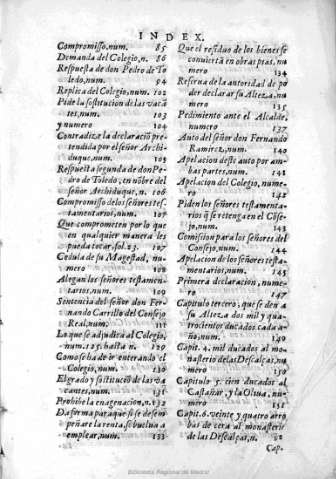 INDEX.
Compromisso, num. 85
Demanda del Colegio, n. 86
Respuesta de don Pedro de To
ledo, num. 94
Replica del Colegio, num. 102
Pide la sostitucion de las vacã
tes, num. 103
y numero 104
Contradize la declaraciõ pre-
tendida por el señor Archi-
duque, num. 105
Respuesta segunda de don Pe-
dro de Toledo, en nõbre del
señor Archiduque, n. 106
Compromisso de los señores tes-
tamentarios, num. 107
Que comprometen por lo que
en qualquier manera les
pueda tocar. fol. 23. 107
Cedula de su Magestad, nu-
mero 108
Alegan los señores testamen-
tarios, num. 109
Sentencia del señor don Fer-
nando Carrillo del Consejo
Real, num. 111
Lo que se adjudica al Colegio,
num. 125. hasta n. 129
Como se ha de ir enterando el
Colegio, num. 130
El grado y sostituciõ de las va
cantes, num. 131
Prohibe la enagenacion, n. 132
Da forma para que si se desem
peñare la renta, se buelua a
emplear, num. 133
Que el residuo de los bienes se
conuierta en obras pias, nu
mero 134
Reserua de la autoridad de po
der declarar su Alteza, nu
mero 135
Pedimiento ante el Alcalde,
numero 137
Auto del señor don Fernando
Ramirez, num. 140
Apelacion deste auto por am-
bas partes, num. 141
Apelacion del Colegio, nume-
ro 142
Piden los señores testamenta-
rios q̃ se retenga en el Cõse-
jo, num. 143
Comission para los señores del
Consejo, num. 144
Apelacion de los señores testa-
mentarios, num. 145
Primera declaracion, nume-
ro 147
Capitulo tercero, que se den a
su Alteza dos mil y qua-
trocientos ducados cada a-
ño, num. 149
Capit. 4. mil ducados al mo-
nasterio de las Descalças, nu
mero 150
Capitulo 5. cien ducados al
Castañar, y la Oliua, nu-
mero 151
Capit. 6. veinte y quatro arro
bas de cera al monasterio
de las Descalças, n.
Cap.
Biblioteca Regional de Madrid